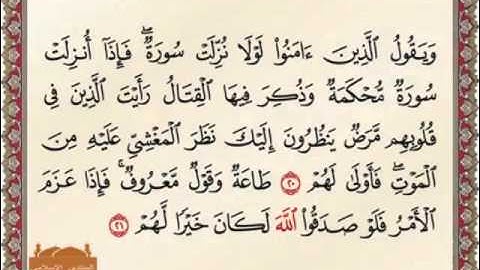 وَيَقُولُ ٱلَّذِينَ ءَامَنُوا۟ لَوْلَا نُزِّلَتْ سُورَةٌ ۖ فَإِذَآ أُنزِلَتْ
سُورَةٌ مُّحْكَمَةٌ وَذُكِرَ فِيهَا ٱلْقِتَالُ رَأَيْتَ ٱلَّذِينَ فِى
قُلُوبِهِم مَّرَضٌ يَنظُرُونَ إِلَيْكَ نَظَرَ ٱلْمَغْشِىِّ عَلَيْهِ مِنَ
ٱلْمَوْتِ ۖ فَأَوْلَىٰ لَهُمْ ٢٠ طَاعَةٌ وَقَوْلٌ مَّعْرُوفٌ ۚ فَإِذَا عَزَمَ
ٱلْأَمْرُ فَلَوْ صَدَقُوا۟ ٱللَّهَ لَكَانَ خَيْرًا لَّهُمْ ٢١